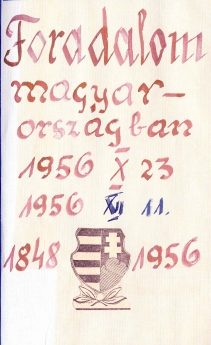 Foradalom
magyar-
országban
1956 X 23
1956 XI 11.
1848 1956